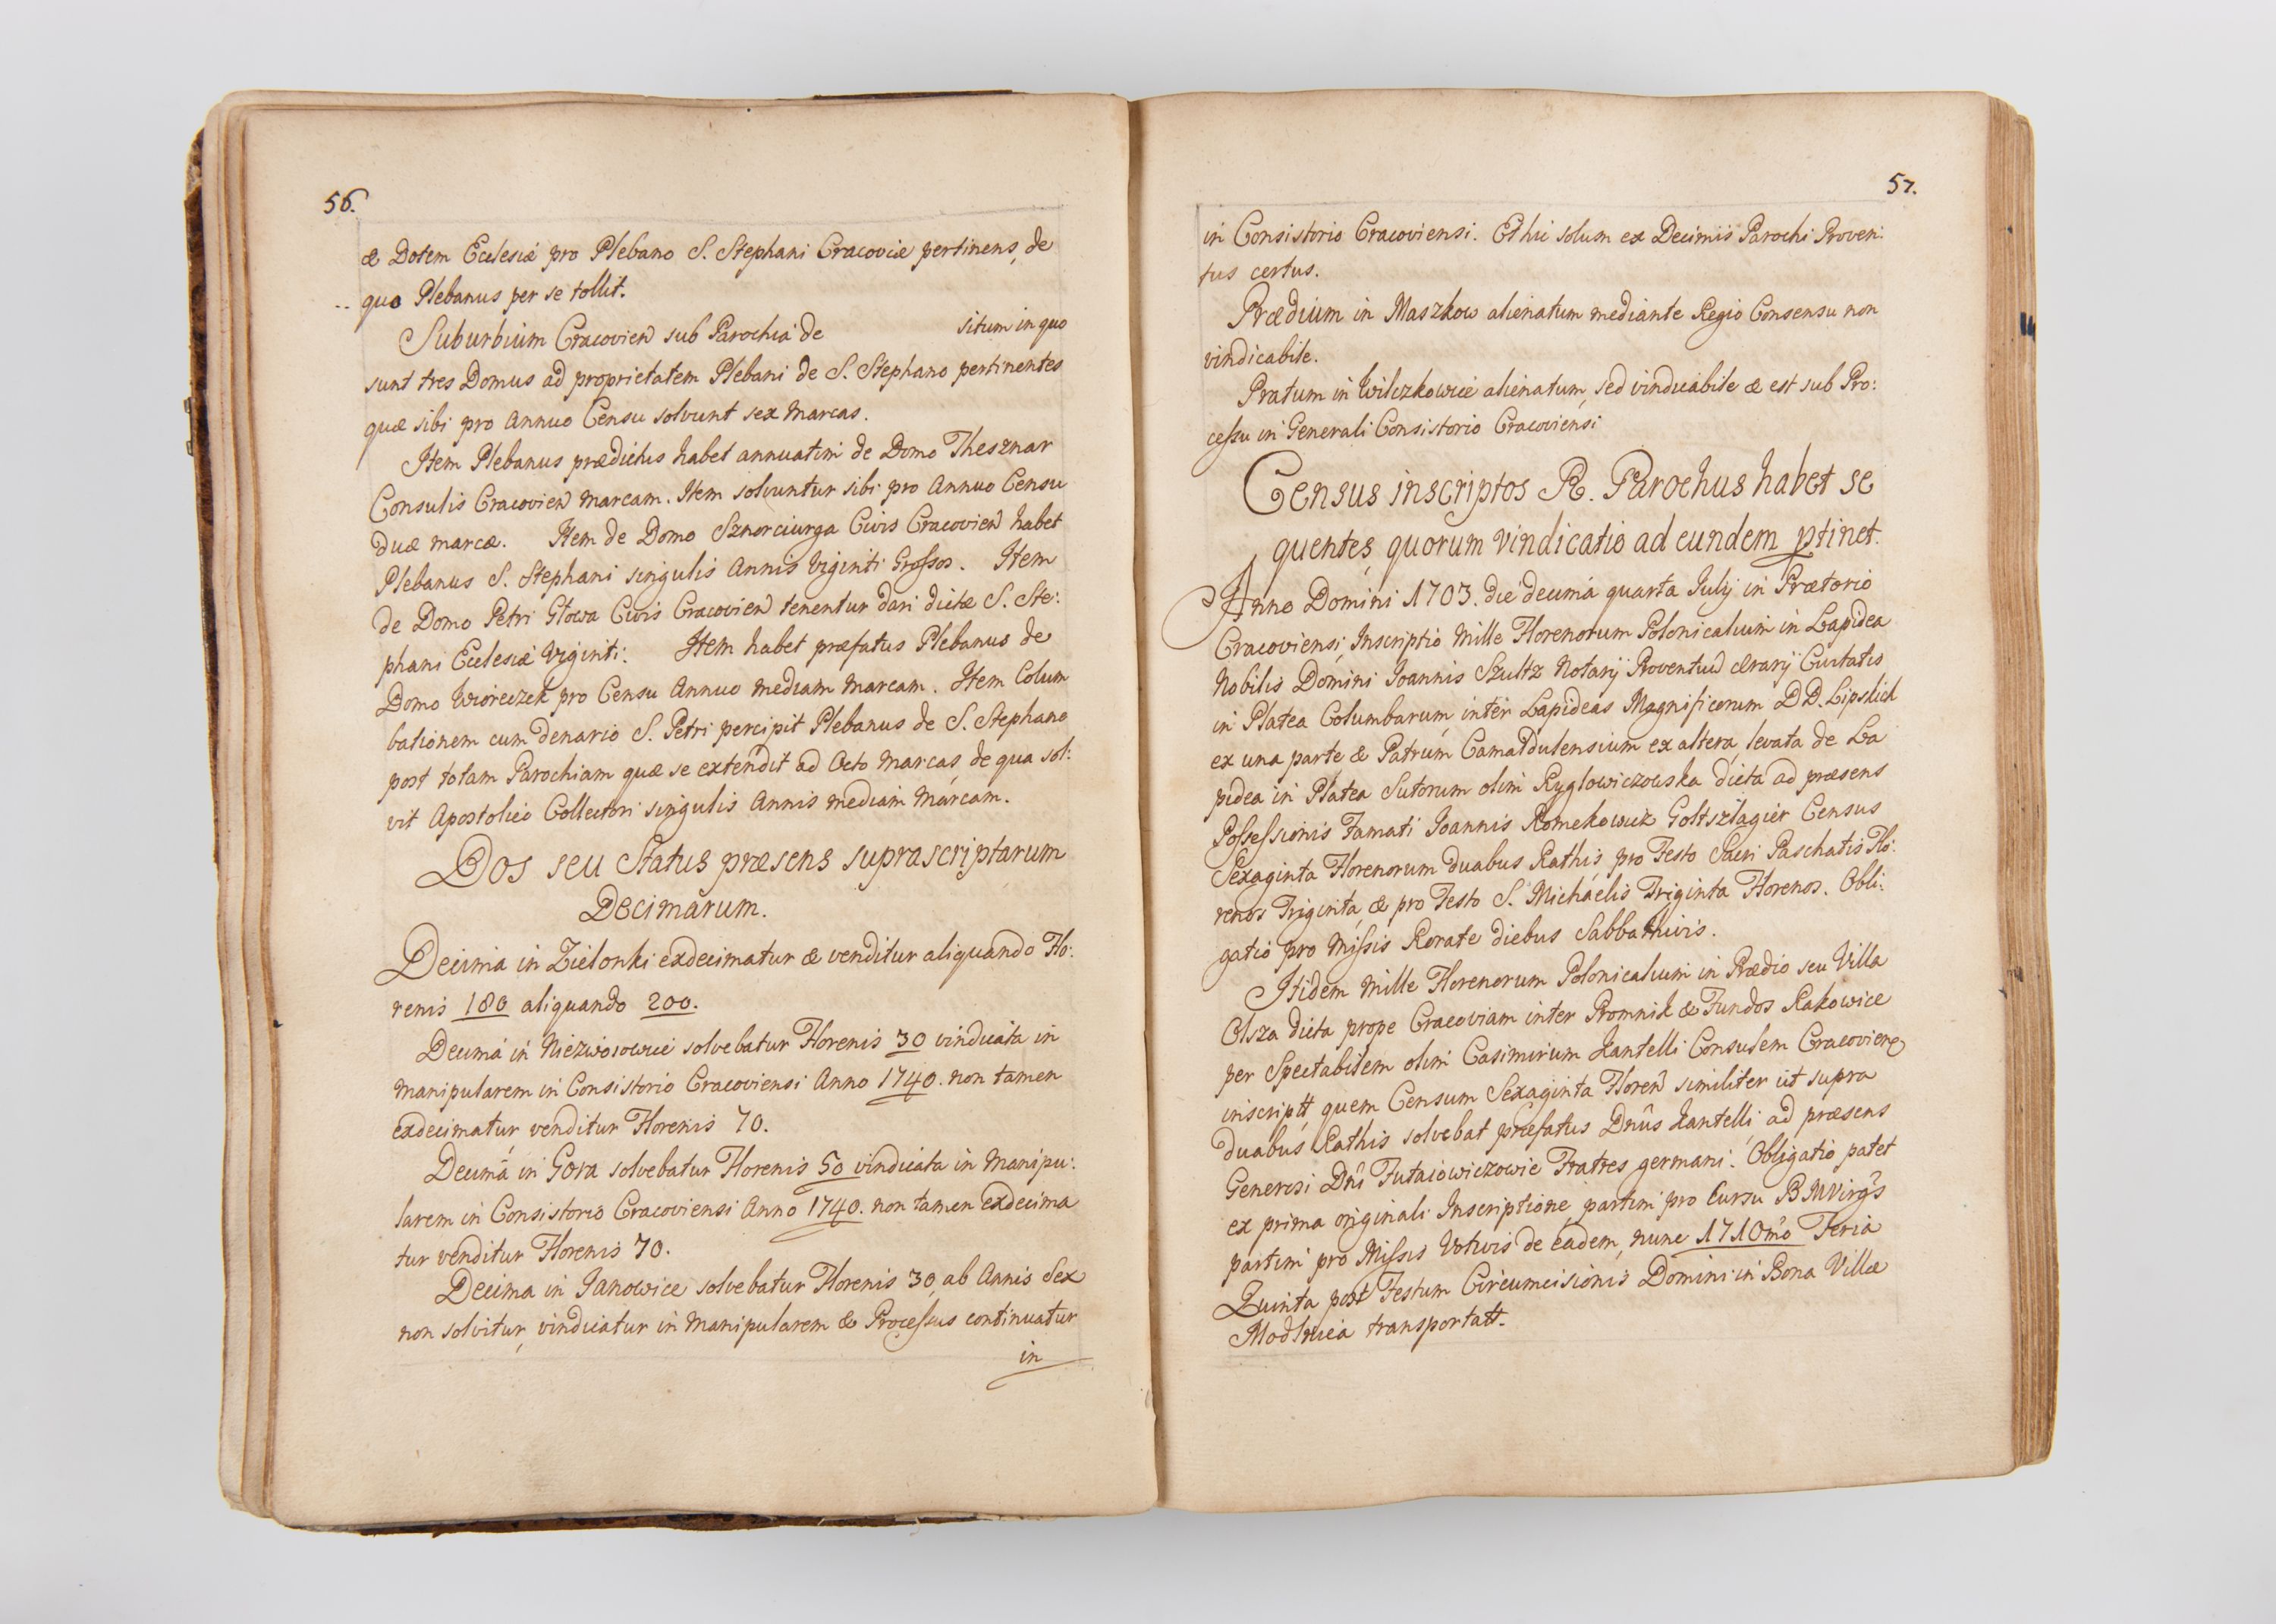 56.
& Dotem Ecclesiæ pro Plebano S. Stephani Cracoviæ pertinens, de
quo Plebanus per se tollit.
Suburbium Cracovien sub Parochia de situm in quo
sunt tres Domus ad proprietatem Plebani de S. Stephano pertinentes
quæ sibi pro Annuo Censu solvunt sex Marcas.
Item Plebanus prædictus habet annuatim de Domo Thesznar
Consulis Cracovien Marcam. Item solvuntur sibi pro Annuo Censu
duæ Marcæ. Item de Domo Sznorciurga Civis Cracovien habet
Plebanus S. Stephani singulis Annis Viginti Grossos. Item
de Domo Petri Głowa Civis Cracovien tenentur dari dictæ S. Ste:
phani Ecclesiæ Viginti: Item habet præfatus Plebanus de
Domo Wioreczek pro Censu Annuo mediam Marcam. Item Colum
bationem cum denario S. Petri percipit Plebanus de S. Stephano
post totam Parochiam quæ se extendit ad Octo Marcas, de qua sol:
vit Apostolico Collectori singulis Annis mediam Marcam.
Dos seu Status præsens suprascriptarum
Decimarum.
Decima in Zielonki exdecimatur & venditur aliquando Flo:
renis 180 aliquando 200.
Decima in Niezwoiowice solvebatur Florenis 30 vindicata in
Manipularem in Consistorio Cracoviensi Anno 1740. non tamen
exdecimatur, venditur Florenis 70.
Decima in Gora solvebatur Florenis 50 vindicata in Manipu:
larem in Consistorio Cracoviensi Anno 1740. non tamen exdecima
tur venditur Florenis 70.
Decima in Janowice solvebatur Florenis 30, ab Annis Sex
non solvitur, vindicatur in Manipularem & Processus continuatur
in
57.
in Consistorio Cracoviensi. Et hic solum ex Decimis Parochi Proven:
tus certus.
Prædium in Maszkow alienatum mediante Regio Consensu non
vindicabile.
Pratum in Wilczkowice alienatum, sed vindicabile & est sub Pro:
cessu in Generali Consistorio Cracoviensi
Census inscriptos R. Parochus habet se
quentes, quorum vindicatio ad eundem ptinet.
Anno Domini 1703. die decima quarta July in Prætorio
Cracoviensi, Inscriptio Mille Florenorum Polonicalium in Lapidea
Nobilis Domini Joannis Szultz Notarÿ Proventuũ Ærarÿ Civitatis
in Platea Columbarum, inter Lapideas Magnificorum D D. Lipskich
ex una parte & Patrum Camaldulensium ex altera, levata de La
pidea in Platea Sutorum olim Ryglowiczowska dicta ad præsens
Possessionis Famati Joannis Romekowicz Goltszlagier Census
Sexaginta Florenorum duabus Rathis, pro Festo Sacri Paschatis Flo:
renos Triginta, & pro Festo S. Michaelis Triginta Florenos. Obli:
gatio pro Missis Rorate diebus Sabbathivis.
Itidem Mille Florenorum Polonicalium in Prædio seu Villa
Olsza dicta prope Cracoviam inter Promnik & Fundos Rakowice
per Spectabilem olim Casimirum Kantelli Consulem Craco­vien
inscript, quem Censum Sexaginta Floren similiter ut supra
duabus Rathis solvebat præfatus Dnûs Kantelli, ad præsens
Generosi Dnî Futaiowiczowie Fratres germani. Obligatio patet
ex prima originali Inscriptione, partim pro Cursu B M Virgs
partim pro Missis Votivis de eadem, nunc 1710mo Feria
Quinta post Festum Circumcisionis Domini in Bona Villæ
Modlnica transportatt.